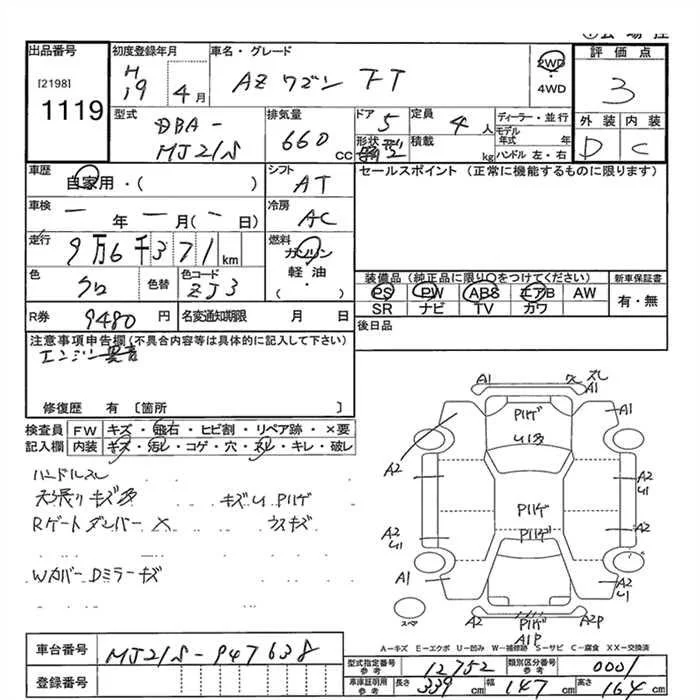 出品番号
[2198]
1119
初度登録年月
H19 4月
車名・グレード
AZ ワゴン FT
2WD
・
4WD
評価点
3
外装 内装
D C
型式
DBA-
MJ21S
排気量
660 cc
ドア
5
形状
定員
4人
積載
kg
ディーラー・並行
モデル年式 年
ハンドル 左・右
車歴
自家用・( )
シフト
AT
セールスポイント (正常に機能するものに限ります)
車検
― 年 ― 月(― 日)
冷房
AC
走行
9万6千371km
燃料
ガソリン
軽油・
( )
色
クロ
色替
色コード
ZJ3
装備品(純正品に限り〇をつけてください)
PS PW ABS エアB AW
SR ナビ TV カワ
新車保証書
有・無
R券
9480円
名変通知期限 月 日
後日品
注意事項申告欄(不具合内容等は具体的に記入して下さい)
エンジン異音
修復歴 有 〔箇所 〕
検査員
記入欄
FW キズ・飛石・ヒビ割・リペア跡・×要
内装 キズ・汚レ・コゲ・穴・スレ・キレ・破レ
ハンドルスレ
天張りキズ多 キズU Pハゲ
Rゲートダンパー × ウスキズ
Wカバー Dミラーキズ
A1 ズレ
A1
Pハゲ A1
U13
A2 A2
U1
Pハゲ
A2 Pハゲ A2
U1
A1 A2
U1
スペア
Pハゲ A2P
A1P
A-キズ E-エクボ U-凹み W-補修跡 S-サビ C-腐食 XX-交換済
車台番号
MJ21S-947638
登録番号
型式指定番号
参考
12752
類別区分番号
参考
0001
車庫証明用
参考
長さ 339cm 幅 147cm 高さ 164cm